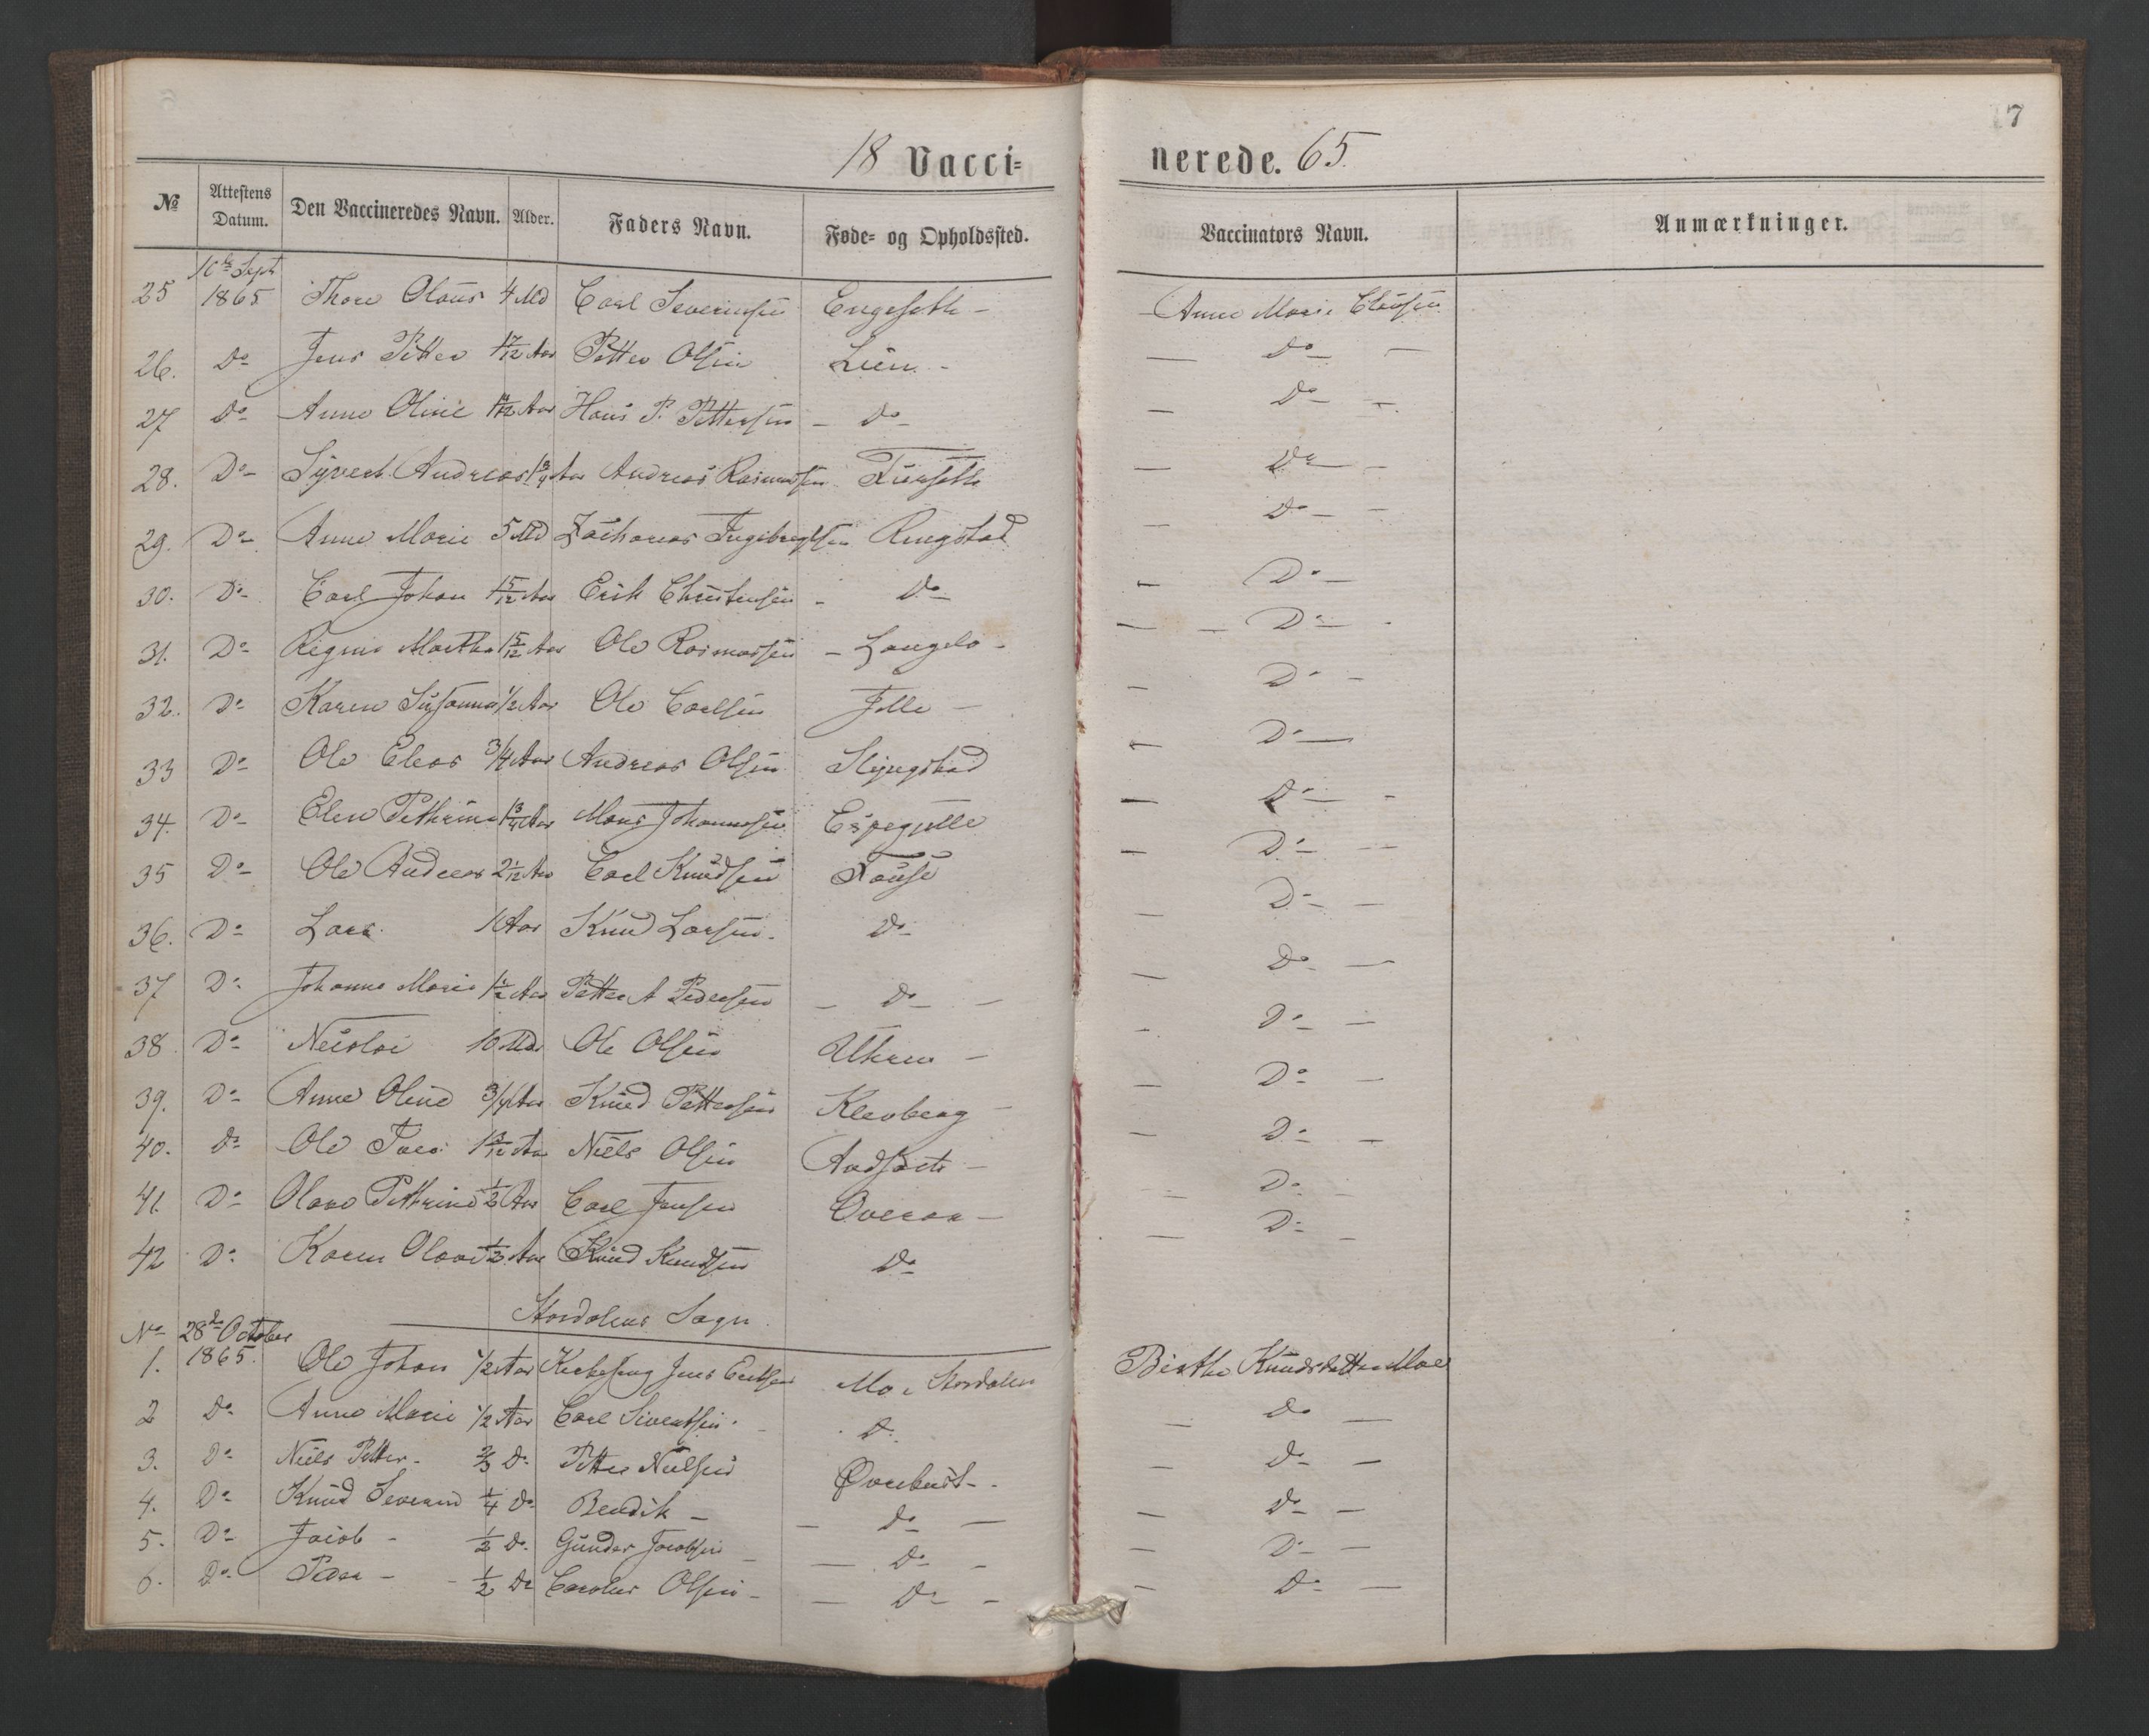 7
18 Vacci- nerede. 65.
№ Attestens Datum. Den Vaccineredes Navn. Alder. Faders Navn. Føde- og Opholdssted. Vaccinators Navn. Anmærkninger.
10de Sept
25 1865 Thore Olaus 4 Md Carl Severinsen Engeseth - Anne Marie Clausen
26. Do Jens Petter 1 7/12 Aar Petter Olsen Lien - Do -
27 Do Anne Oline Aar Hans P. Pettersen - Do - Do -
28. Do Syvert Andreas 1 3/4 Aar Andreas Rasmussen - Do -
29. Do Anne Marie 5 Md Zacharias Ingebregtsen Ringstad - Do -
30. Do Carl Johan 1 5/12 Aar Erik Christensen - Do - Do -
31. Do Regine Martha 1 5/12 Aar Ole Rasmussen - Langelo - - Do -
32. Do Karen Susanna 1/2 Aar Ole Carlsen Jelle - - Do -
33 Do Ole Elias 3/4 Aar Andreas Olsen Slyngstad - Do -
34. Do Elen Pethrine 1 3/4 Aar Mons Johannesen Espegjelle - Do -
35 Do Ole Andreas 2 1/12 Aar Carl Knudsen Fause - Do -
36. Do Lars. Aar Knud Larsen. Do - Do -
37 Do Johanne Marie 1 1/2 Aar Petter A Pedersen - Do - - Do -
38 Do Nicolai 10 Mdr Ole Olsen Uhren - - Do -
39. Do Anne Oline 3/4 Aar Knud Pettersen Klevberg - - Do -
40. Do Ole Aar Niels Olsen - - Do -
41. Do Olave Pethrine 1/2 Aar Carl Jensen Overaa - - Do -
42 Do Karen Olave 1/2 Aar Knud Knudsen Do - Do -
Stordalens Sogn.
No 28de October
1. 1865. Ole Johan 1/2 Aar Kirkesang Jens Mo i Stordalen Birthe Knudsdatter Moe
2 Do Anne Marie 1/2 Aar Carl Sivertsen. Do. - Do -
3. Do Niels Petter - 2/3 Do Petter Nielsen - Do -
4. Do Knud Severin 1/4 Do Bendik - - Do - - Do -
5. Do Jacob - 1/2 Do Gunder Jacobsen - Do - - Do -
6. Do Peder - 1/2 Do Carolus Olsen - - Do - - Do -